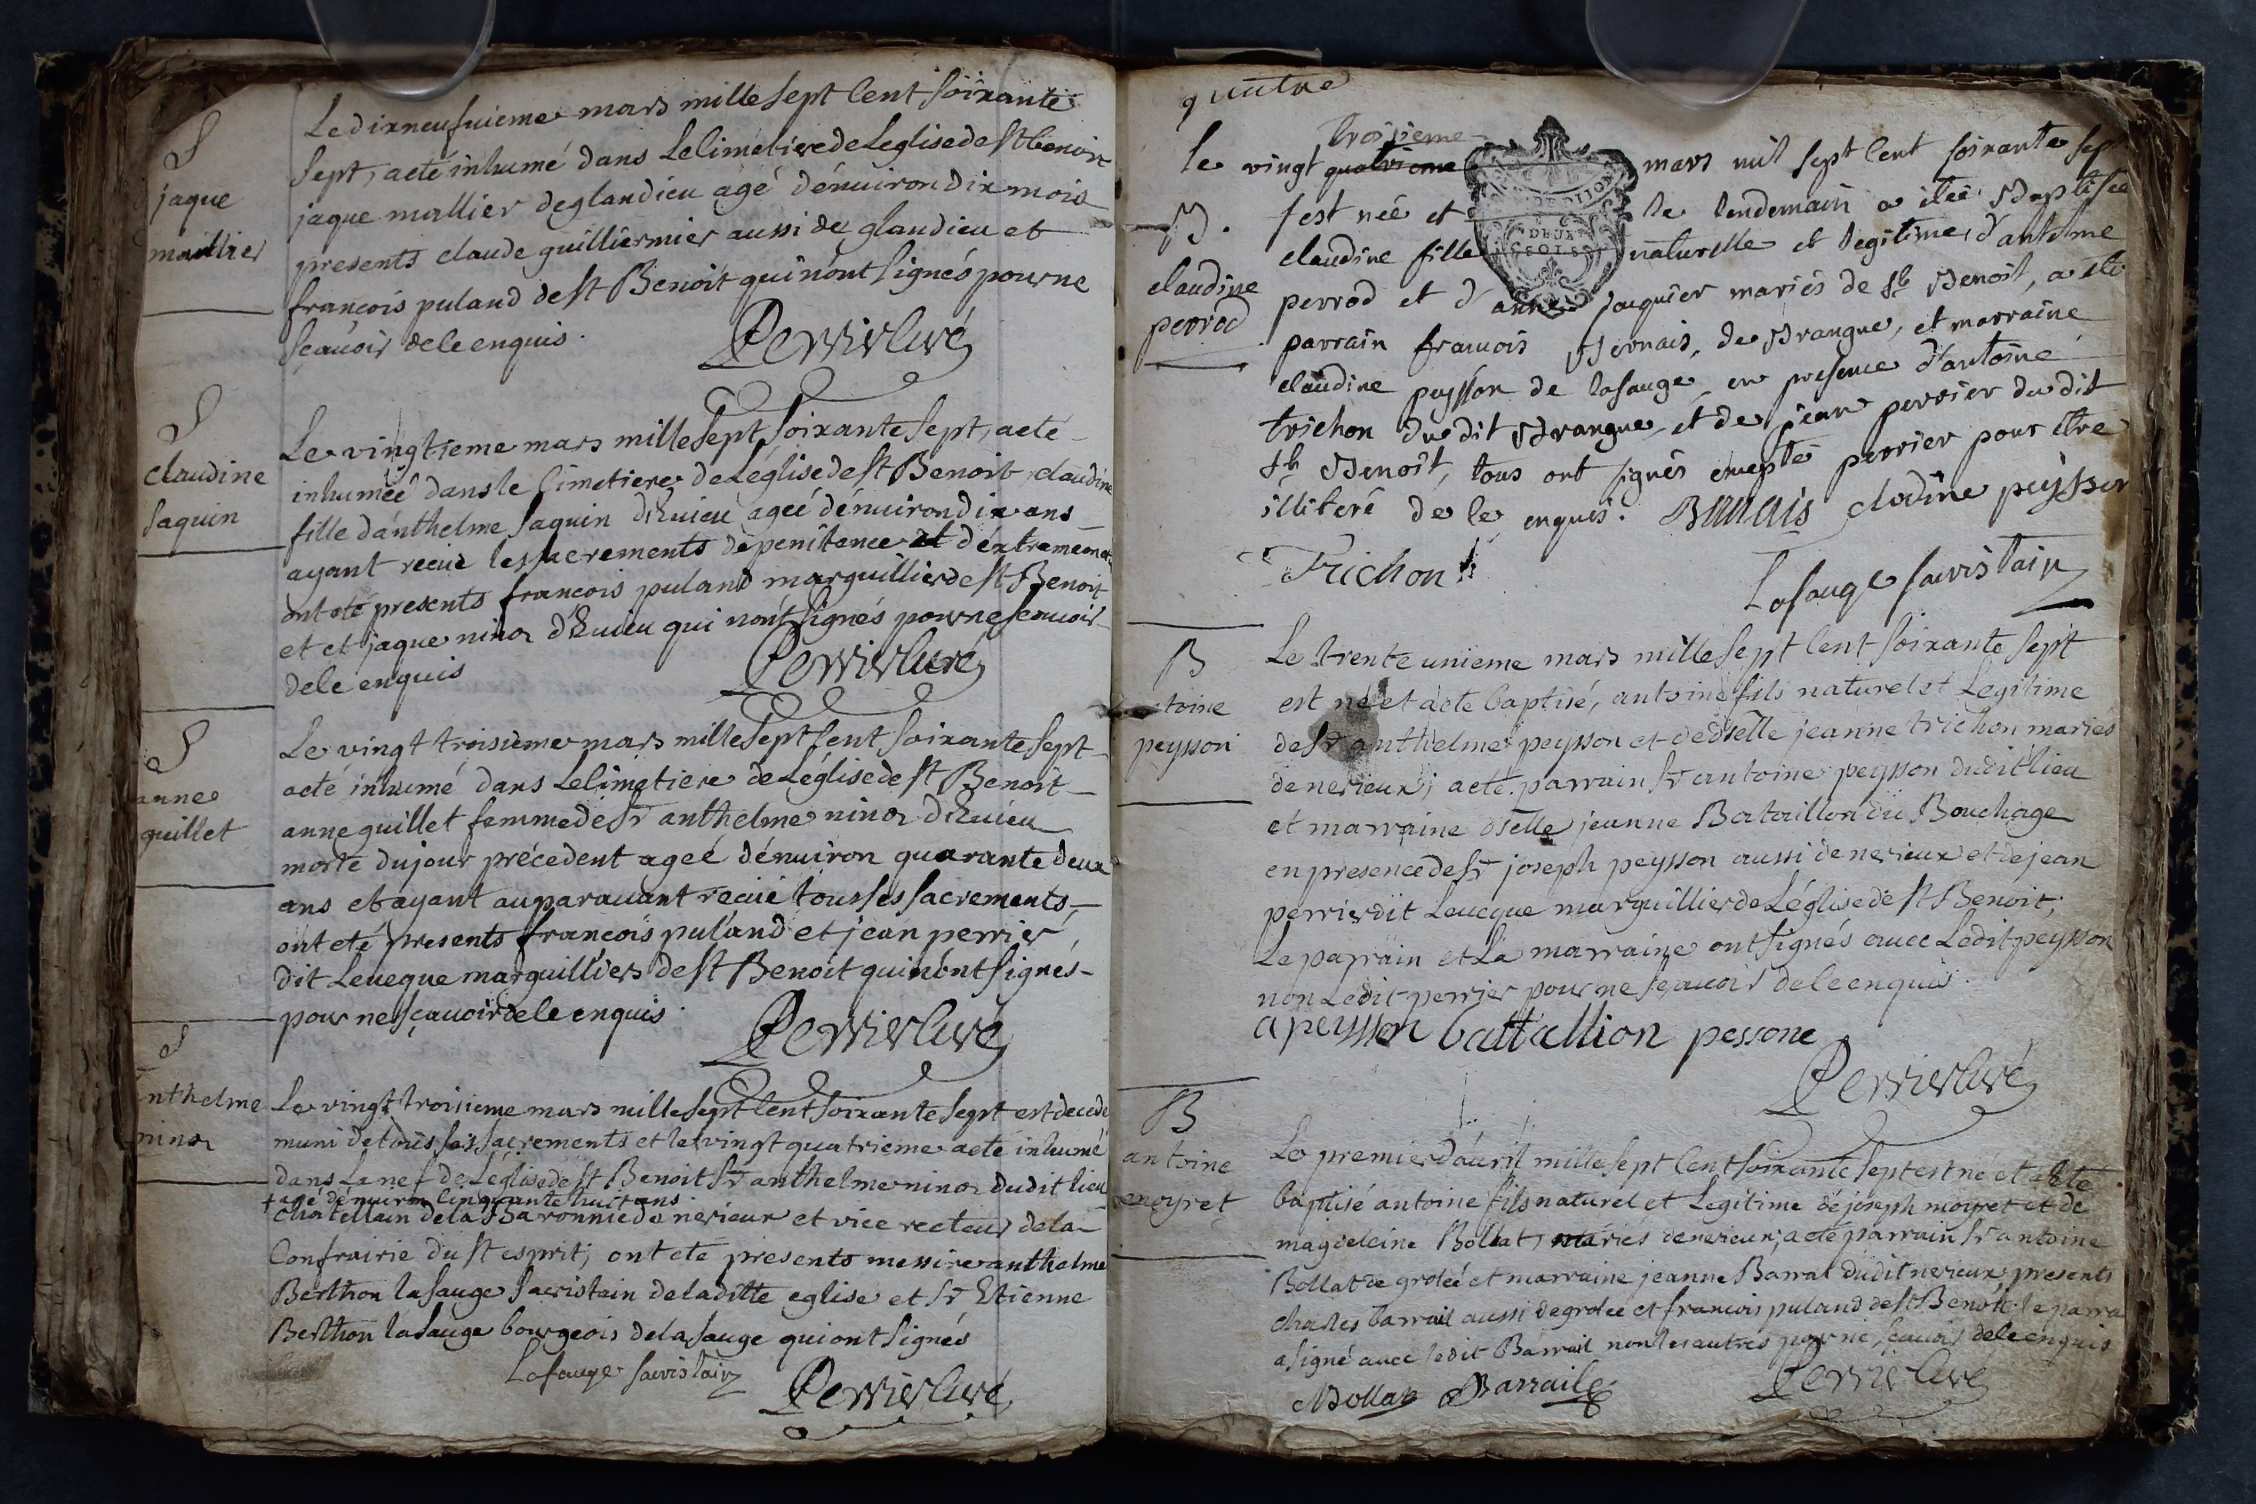 S
jaque
mallier
Le dixneufuieme mars mille sept Cent soixante
sept, a eté inhumé dans Le Cimetiere de Leglise de st benoit
jaque mallier de glandieu agé dénuiron dix mois
presents claude guilliermier aussi de glandieu et
francois puland de st Benoit qui nont signés pour ne
sçauoir de le enquis.
Perrier Curé
S
claudine
saquin
Le vingtieme mars mille sept soixante sept, a eté
inhumeé dans le Cimetiere de Léglise de st Benoit claudine
fille danthelme saquin dEuieu ageé dénuiron dix ans
ayant recue les sacrements de penitence et d'extremeonct.
ont eté presents francois puland marguillier de st Benoit
et et jaque ninoz dEuieu qui nont signés pour ne scauoir
de le enquis
Perrier Curé
S
anne
quillet
Le vingt troisieme mars mille sept Cent soixante sept
a eté inhumé dans Le Cimetiere de Léglise de st Benoit
anne quillet femme de sr anthelme ninoz dEuieu
morte du jour précedent ageé dénuiron quarante deux
ans et ayant auparauant recue tous ses sacrements,
ont eté presents francois puland et jean perrier
dit Leueque marguilliers de st Benoit qui nont signés
pour ne sçauoir de le enquis.
Perrier Curé
S
nthelme
ninoz
Le vingt troisieme mars mille sept Cent soixante sept est decedé
muni de tous ses sacrements et le vingt quatrieme a eté inhumé
dans La nef de Léglise de st Benoit sr anthelme ninoz dudit lieu
+ agé dénuiron Cinquante huit ans.
chatellain de la Baronnie de nerieux et vice recteur de la
Confrairie du st esprit; ont eté presents messire anthelme
Berthon lasauge sacristain de laditte eglise et sr Etienne
Berthon lasauge bourgeois de lasauge qui ont signés
Lasauge sacristain
Perrier Curé
quatre
troisieme
le vingt quatrieme mars mil sept Cent soixante sept
B.
claudine
perrod
s'est neé et le lendemain a eteé Baptiseé
claudine fille naturelle et legitime d'antelme
perrod et d'anne jacquier mariés de st Benoit, a eté
parrain francois Bernais, de Brangue, et marraine
claudine peysson de lasauge, en presence d'antoine
trichon du dit Brangue, et de jean perrier du dit
st Benoit, tous ont signés excepté perrier pour etre
illiteré de le enquis. Bernais clodine peysson
Trichon
Lasauge sacristain
B
toine
peysson
Le trente unieme mars mille sept Cent soixante sept
est né et a eté baptisé, antoine fils naturel et Legitime
de sr anthelme peysson et de dselle jeanne trichon mariés
de nerieux; a eté parrain sr antoine peysson dudit lieu
et marraine dselle jeanne Bataillon du Bouchage
en presence de sr joseph peysson aussi de nerieux et de jean
perrier dit Leueque marguillier de Léglise de st Benoit;
Le parrain et La marraine ont signés auec Ledit peysson
non Ledit perrier pour ne sçauoir de le enquis.
a peysson battallion pessone
Perrier Curé
B
antoine
moyret
Le premier dauril mille sept Cent soixante sept est né et a eté
baptisé antoine fils naturel et Legitime de joseph moyret et de
magdeleine Bollat, mariés de nerieux; a eté parrain sr antoine
Bollat de groleé et marraine jeanne Barral dudit nerieux, presents
charles barrail aussi de grolee et francois puland de st Benoit le parra
a signé auec ledit Barrail non les autres pour ne scauoir de le enquis
ABollat Barrail
Perrier Curé
DEJA